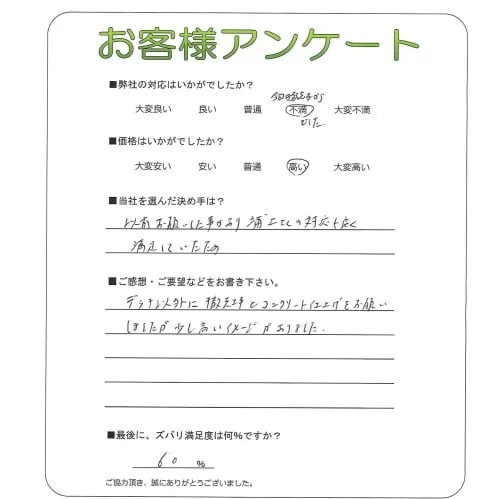 お客様アンケート
■弊社の対応はいかがでしたか？
大変良い 良い 普通 不満 大変不満
でした
■価格はいかがでしたか？
大変安い 安い 普通 高い 大変高い
■当社を選んだ決め手は？
以前お願いした事があり 対応も良く
満足していたため
■ご感想・ご要望などをお書き下さい。
デッキ以外に 撤去工事とコンクリート仕上げをお願い
しましたが少し高いイメージがありました.
■最後に、ズバリ満足度は何%ですか？
60 %
ご協力頂き、誠にありがとうございました。